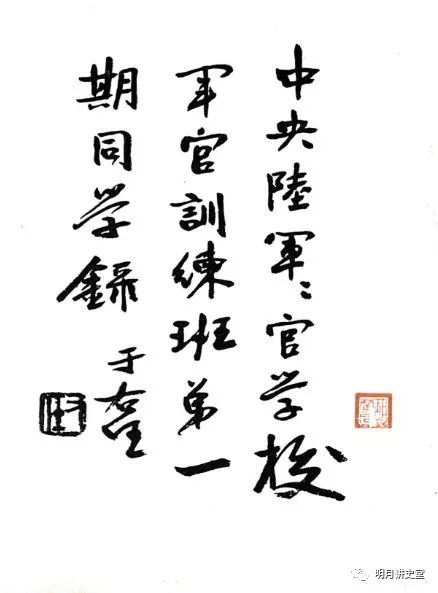 中央陸軍〻官学校
军官訓練班第一
期同学錄
于右任
明月讲史堂